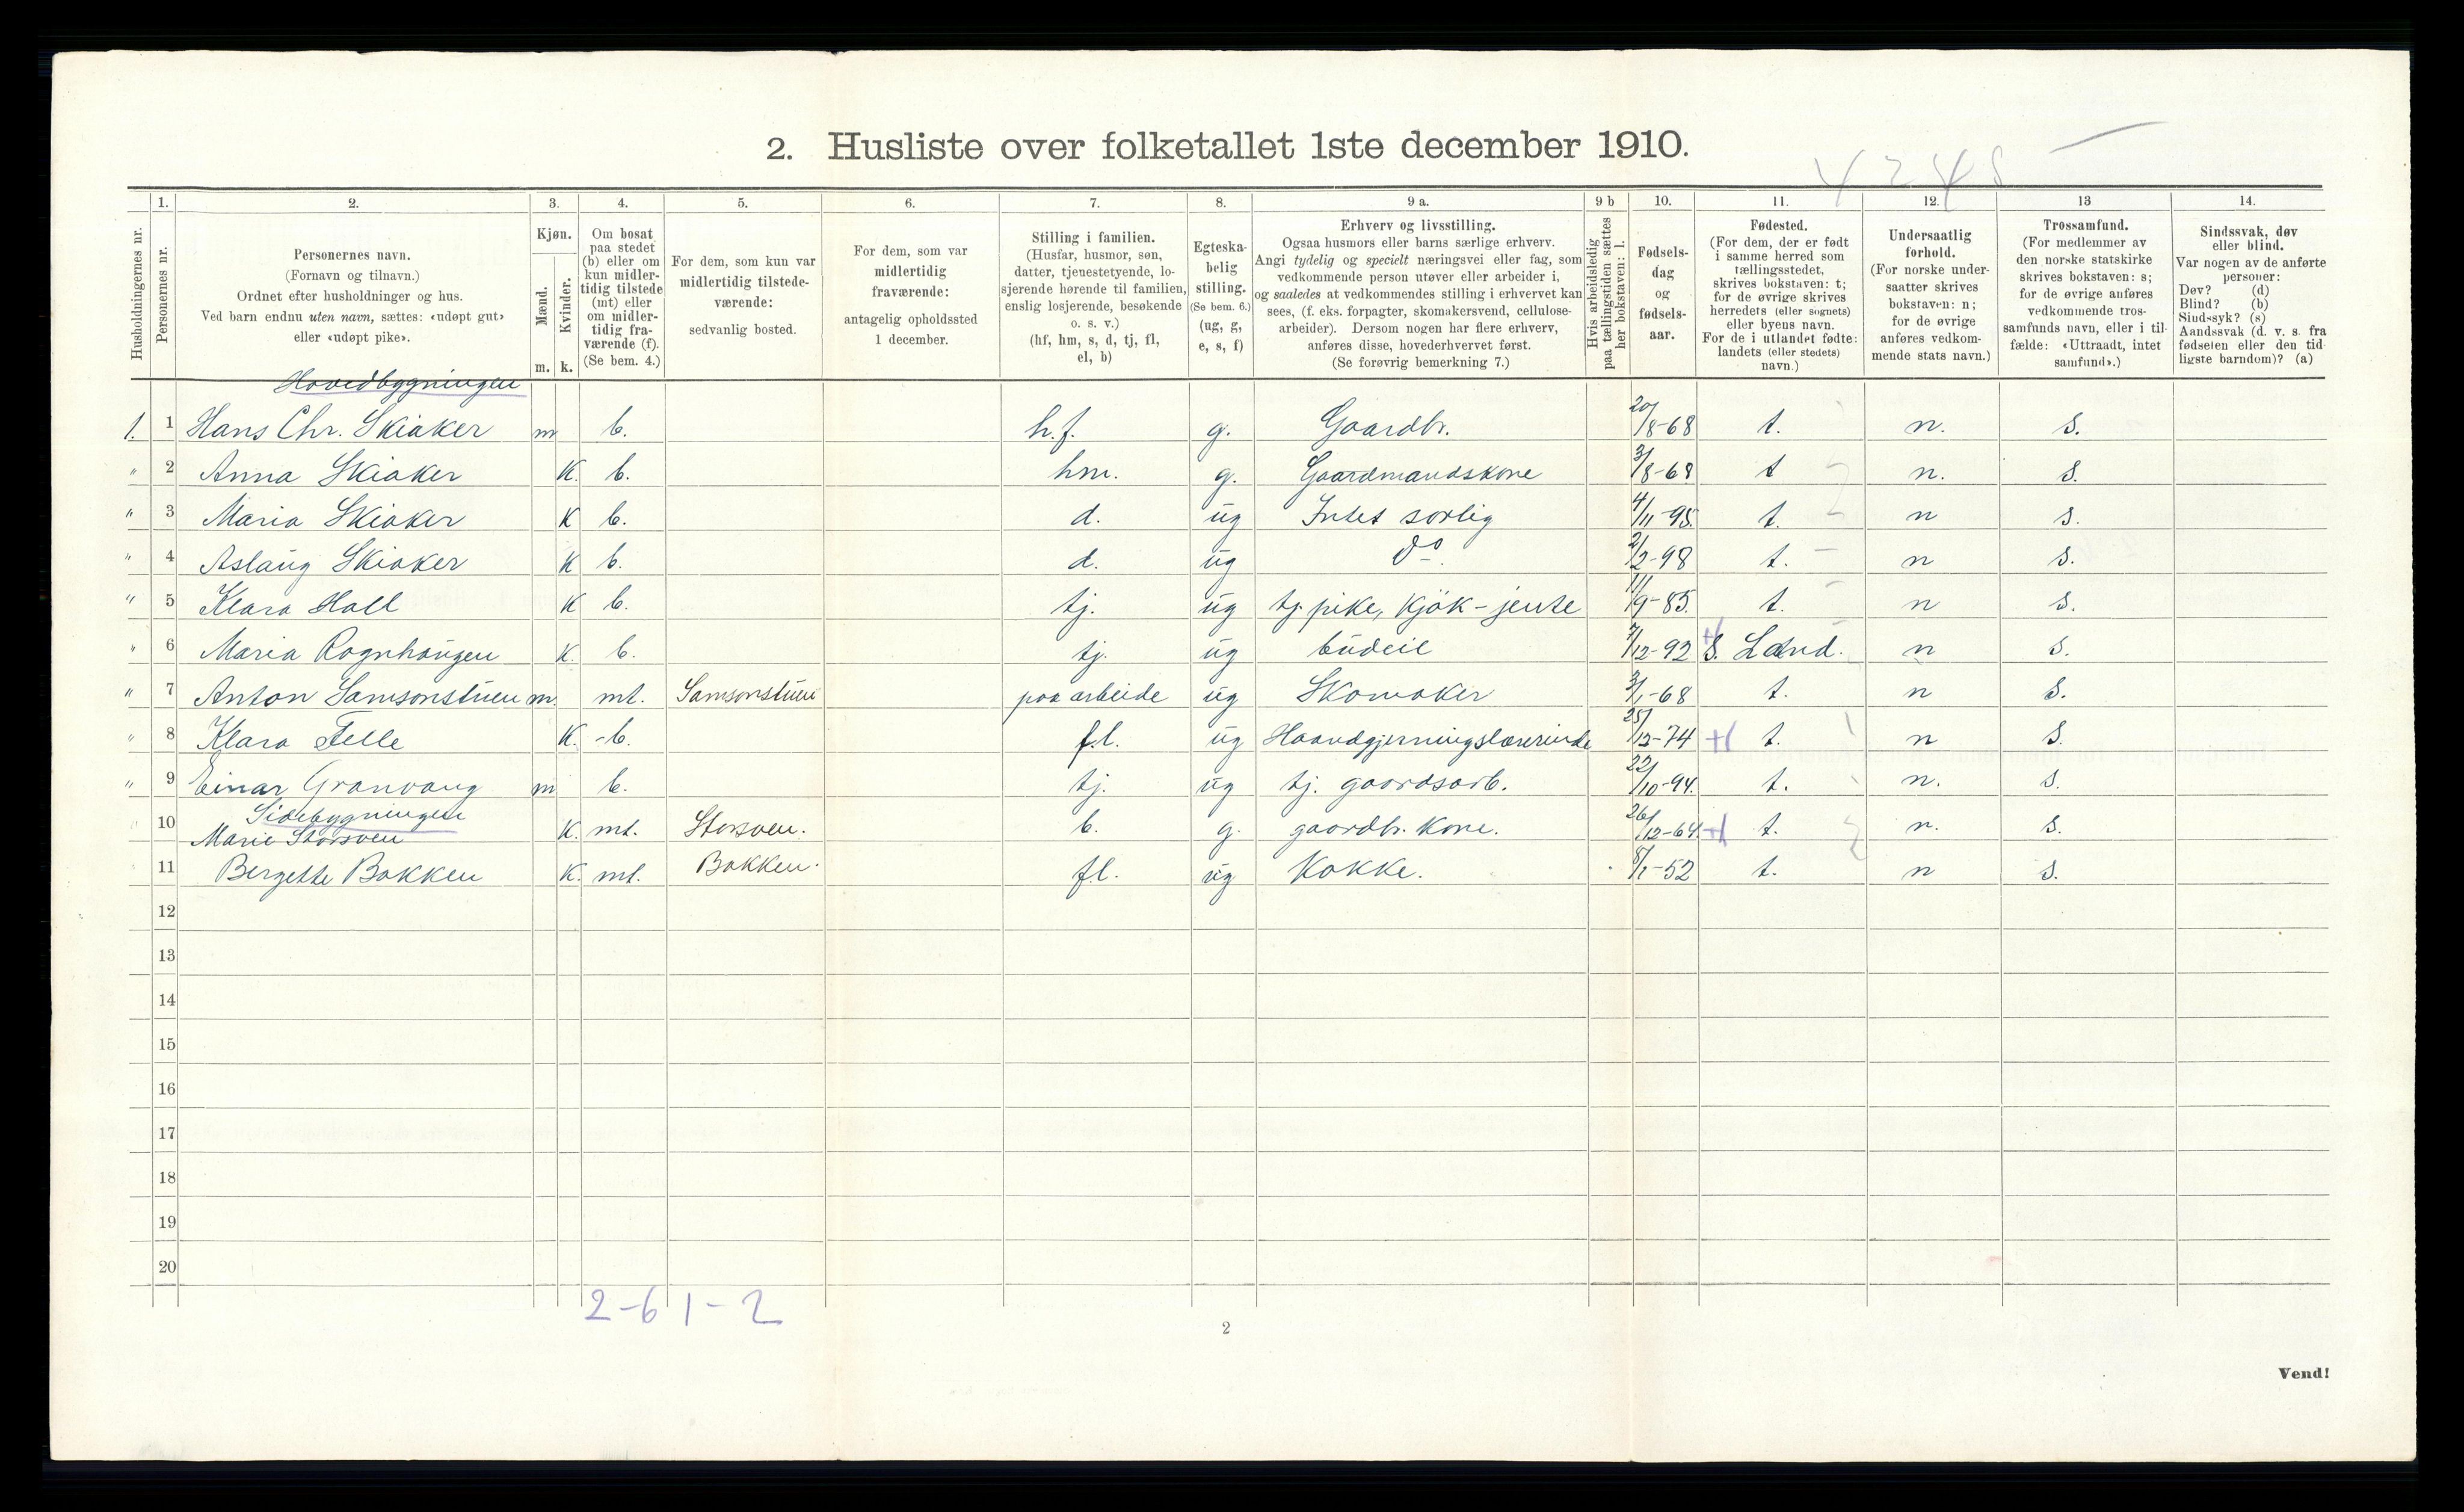 2. Husliste over folketallet 1ste december 1910.
1. 2. 3. 4. 5. 6. 7. 8. 9 a. 9 b 10. 11. 12. 13 14.
Husholdningernes nr.
Personernes nr.
Personernes navn.
(Fornavn og tilnavn.)
Ordnet efter husholdninger og hus.
Ved barn endnu uten navn, sættes: «udøpt gut»
eller «udøpt pike».
Kjøn.
Mænd.
Kvinder.
m. k.
Om bosat
paa stedet
(b) eller om
kun midler-
tidig tilstede
(mt) eller
om midler-
tidig fra-
værende (f).
(Se bem. 4.)
For dem, som kun var
midlertidig tilstede-
værende:
sedvanlig bosted.
For dem, som var
midlertidig
fraværende:
antagelig opholdssted
1 december.
Stilling i familien.
(Husfar, husmor, søn,
datter, tjenestetyende, lo-
sjerende hørende til familien,
enslig losjerende, besøkende
o. s. v.)
(hf, hm, s, d, tj, fl,
el, b)
Egteska-
belig
stilling.
(Se bem. 6.)
(ug, g,
e, s, f)
Erhverv og livsstilling.
Ogsaa husmors eller barns særlige erhverv.
Angi tydelig og specielt næringsvei eller fag, som
vedkommende person utøver eller arbeider i,
og saaledes at vedkommendes stilling i erhvervet kan
sees, (f. eks. forpagter, skomakersvend, cellulose-
arbeider). Dersom nogen har flere erhverv,
anføres disse, hovederhvervet først.
(Se forøvrig bemerkning 7.)
Hvis arbeidsledig
paa tællingstiden sættes
her bokstaven: l.
Fødsels-
dag
og
fødsels-
aar.
Fødested.
(For dem, der er født
i samme herred som
tællingsstedet,
skrives bokstaven: t;
for de øvrige skrives
herredets (eller sognets)
eller byens navn.
For de i utlandet fødte:
landets (eller stedets)
navn.)
Undersaatlig
forhold.
(For norske under-
saatter skrives
bokstaven: n;
for de øvrige
anføres vedkom-
mende stats navn.)
Trossamfund.
(For medlemmer av
den norske statskirke
skrives bokstaven: s;
for de øvrige anføres
vedkommende tros-
samfunds navn, eller i til-
fælde: «Uttraadt, intet
samfund».)
Sindssvak, døv
eller blind.
Var nogen av de anførte
personer:
Døv? (d)
Blind? (b)
Sindssyk? (s)
Aandssvak (d. v. s. fra
fødselen eller den tid-
ligste barndom)? (a)
Hovedbygningen
1. 1 Hans Chr. Skiaker m b. h.f. g. Gaardbr. 20/8-68 t. n. s.
" 2 Anna Skiaker K. b. hm. g. Gaardmandskone 3/8-68 t n. s.
" 3 Maria Skiaker K b. d. ug Intet særlig 4/11-95. t. n s.
" 4 Aslaug Skiaker K b. d. ug do. 2/2-98 t. n s.
" 5 Klara Hall K b. tj. ug tj. pike, Kjøk-jente 11/9-85. t. n s.
" 6 Maria Rognhaugen K. b. tj. ug budeie 7/12-92 S. Land. n s.
" 7 Anton Samsonstuen m. mt. Samsonstuen paa arbeide ug Skomaker 3/1-68 t. n s.
" 8 Klara Felle K. b. f.l. ug Haandgjerningslærerinde 25/12-74 t. n s.
" 9 Einar Granvang m b. tj. ug tj. gaardsarb. 22/10-94. t. n. s.
Sidebygningen
10 Marie Storsven K. mt. Storsven. b. g. gaardbr. kone. 26/12-64. t. n. s.
11 Bergette Bakken K. mt. Bakken. f.l. ug Kokke. 8/1-52 t. n s.
12
13
14
15
16
17
18
19
20
2-6 1-2
2
Vend!